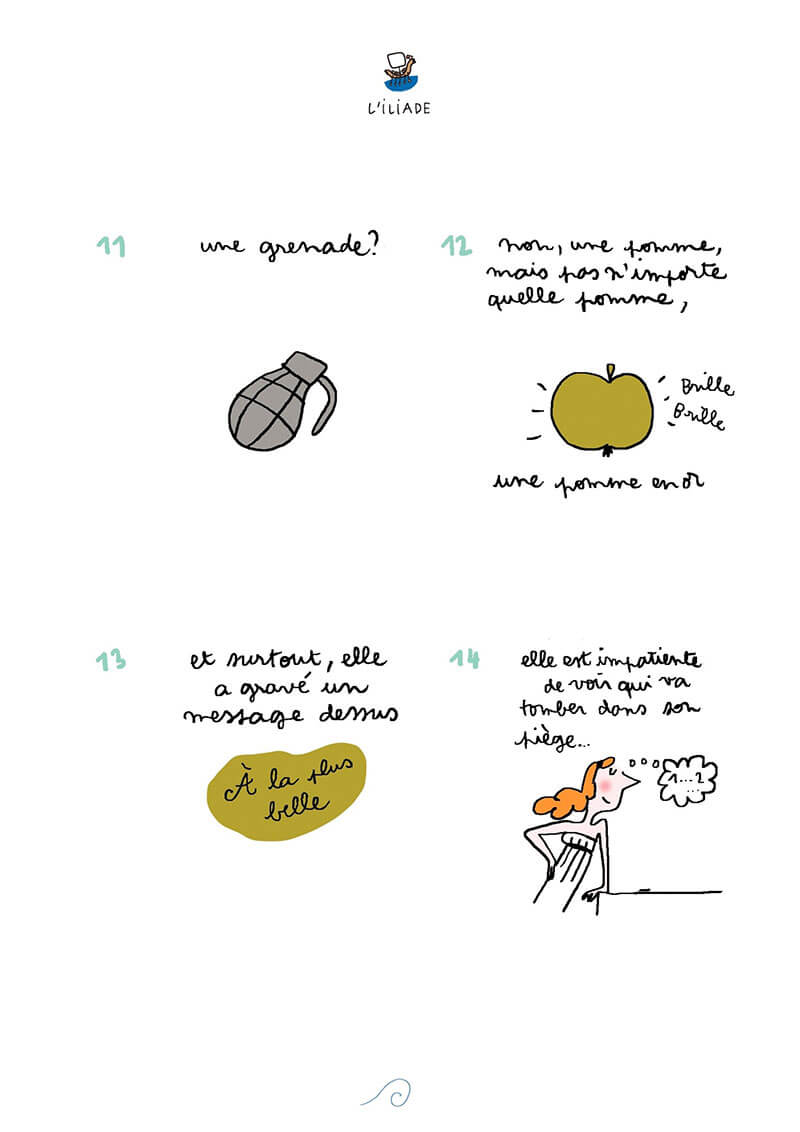 L'ILIADE
11
une grenade?
12
non, une pomme,
mais pas n'importe
quelle pomme,
Brille
Brille
une pomme en or
13
et surtout, elle
a gravé un
message dessus
À la plus
belle
14
elle est impatiente
de voir qui va
tomber dans son
piège...
1...2
...